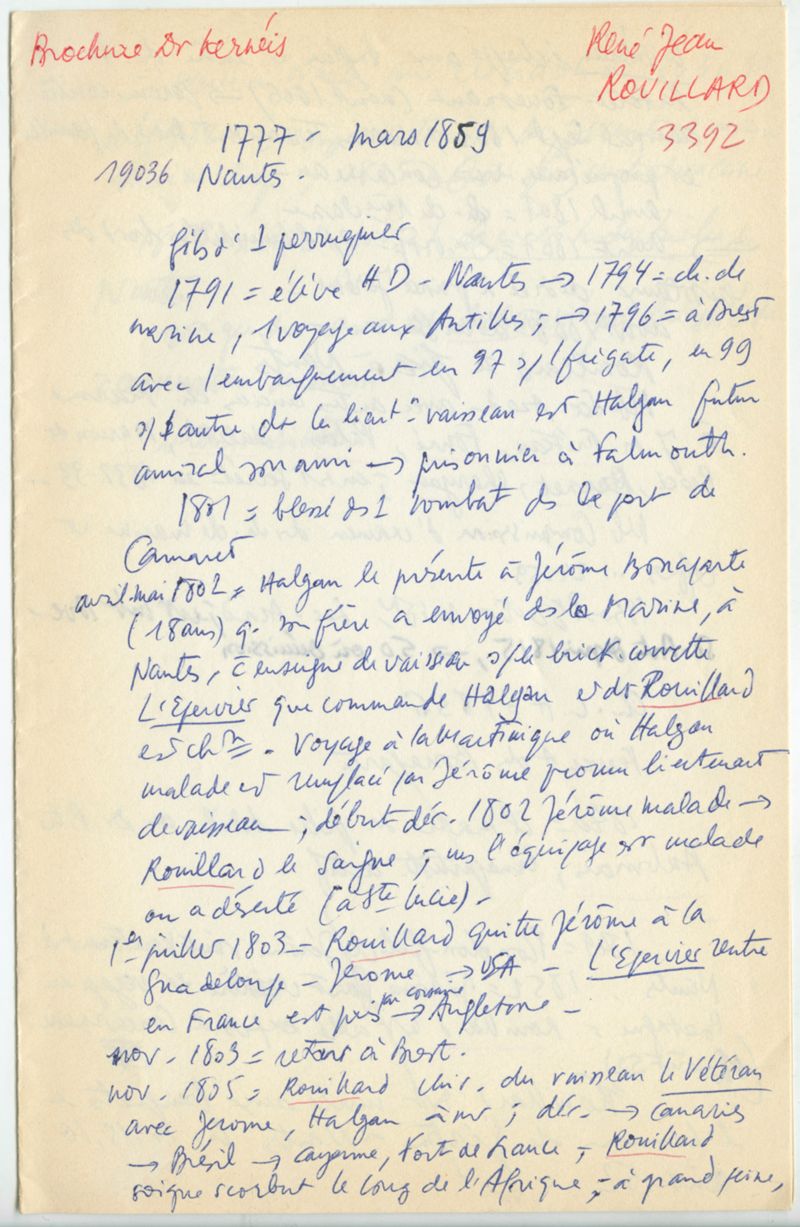 Brochure Dr Kernéis
René Jean
ROUILLARD
3392
1777 - mars 1859
19036 Nantes.
fils d' 1 perruquier
1791 = élève H.D - Nantes → 1794 = ch. de
marine, 1 voyage aux Antilles; → 1796 = à Brest
avec 1 embarquement en 97 s/ 1 frigate, en 99
s/ 1 autre dt le lieut.nt vaisseau est Halgan futur
amiral son ami → prisonnier à Falmouth.
1801 = blessé ds 1 combat ds le port de
Camaret
avril-mai 1802 = Halgan le présente à Jérôme Bonaparte
(18 ans) q. son frère a envoyé ds la Marine, à
Nantes, c enseigne de vaisseau s/ le brick-corvette
L'Epervier que commande Halgan et dt Rouillard
est ch.n - Voyage à la Martinique où Halgan
malade est remplacé par Jérôme promu lieutenant
de vaisseau; début déc. 1802 Jérôme malade →
Rouillard le saigne; ms l'équipage est malade
ou a déserté (à Ste Lucie) -
1er juillet 1803 = Rouillard quitte Jérôme à la
Guadeloupe - Jérôme → USA - L'Epervier rentre
en France est pris par corsaire → Angleterre -
nov. 1803 = retour à Brest.
nov. 1805 = Rouillard chir. du vaisseau le Vétéran
avec Jérome, Halgan; déc. → Canaries
→ Brésil → Cayenne, Fort de France; Rouillard
soigne scorbut le long de l'Afrique; à grand peine,